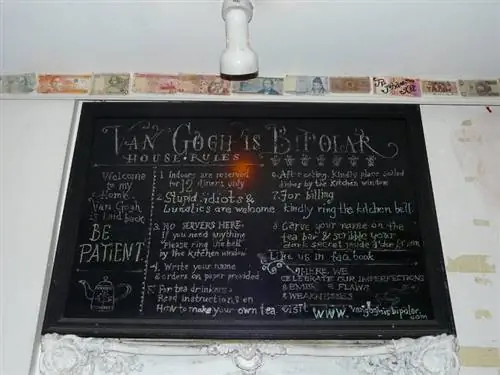 VAN GOGH IS BIPOLAR
HOUSE RULES
Welcome
to my
Home
Van Gogh
is laid back
BE
PATIENT.
1. Indoors are reserved
for 12 diners only
2. Stupid, idiots &
Lunatics are welcome
3. NO SERVERS HERE
If you need anything
Please ring the bell
by the kitchen window
4. Write your name
& orders on paper provided.
5. For tea drinkers
Read instructions on
How to make your own tea
6. After eating, kindly place soiled
dishes by the kitchen window
7. For billing
kindly ring the kitchen bell.
8. Carve your name on the
tea bar & scribble your
dark secret inside
Like us in facebook
HERE WE
CELEBRATE OUR IMPERFECTIONS
FLAWS
& WEAKNESSES
visit www.vangoghisbipolar.com